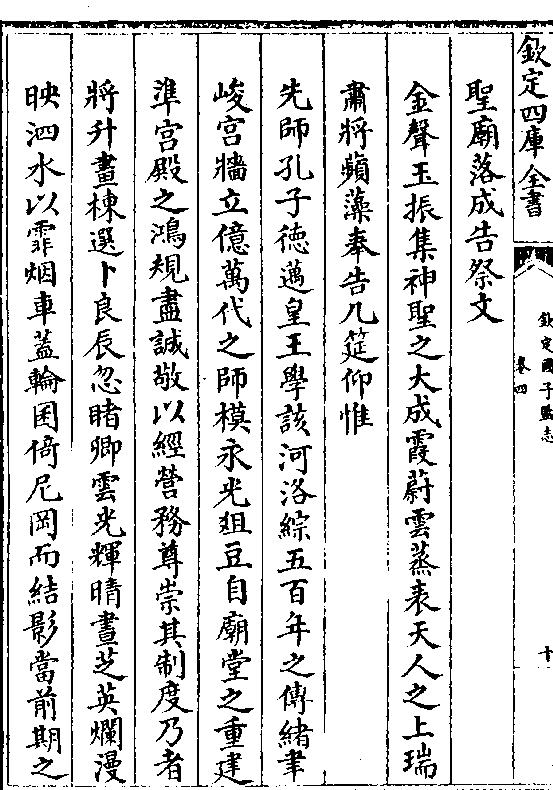 欽定四庫全書
欽定國子監志
卷四
十
聖廟落成告祭文
金聲玉振集神聖之大成霞蔚雲蒸表天人之上瑞
肅將蘋藻奉告几筵仰惟
先師孔子徳邁皇王學該河洛綜五百年之傳緒聿
峻宮牆立億萬代之師模永光俎豆自廟堂之重建
準宮殿之鴻規盡誠敬以經營務尊崇其制度乃者
將升畫棟選卜良辰忽睹卿雲光輝晴晝芝英爛漫
映泗水以霏烟車蓋輪囷倚尼岡而結影當前期之